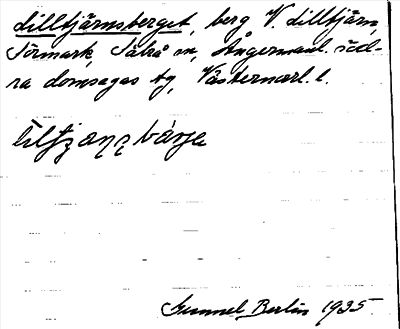 Lilltjärnsberget, berg V. Lilltjärn,
Törmark, Säbrå sn, Ångermanl. söd-
ra domsagas tg, Västernorl. l.
Gunnel Berlin 1935